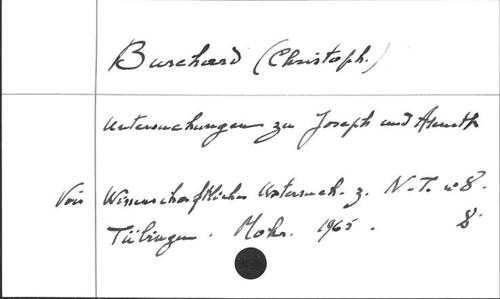 Burchard (Christoph.)
Untersuchungen zu Joseph und Aseneth
Voir Wissenschaftliche Untersuch. z. N.T. n° 8.
Tübingen. Mohr. 1965. 8°